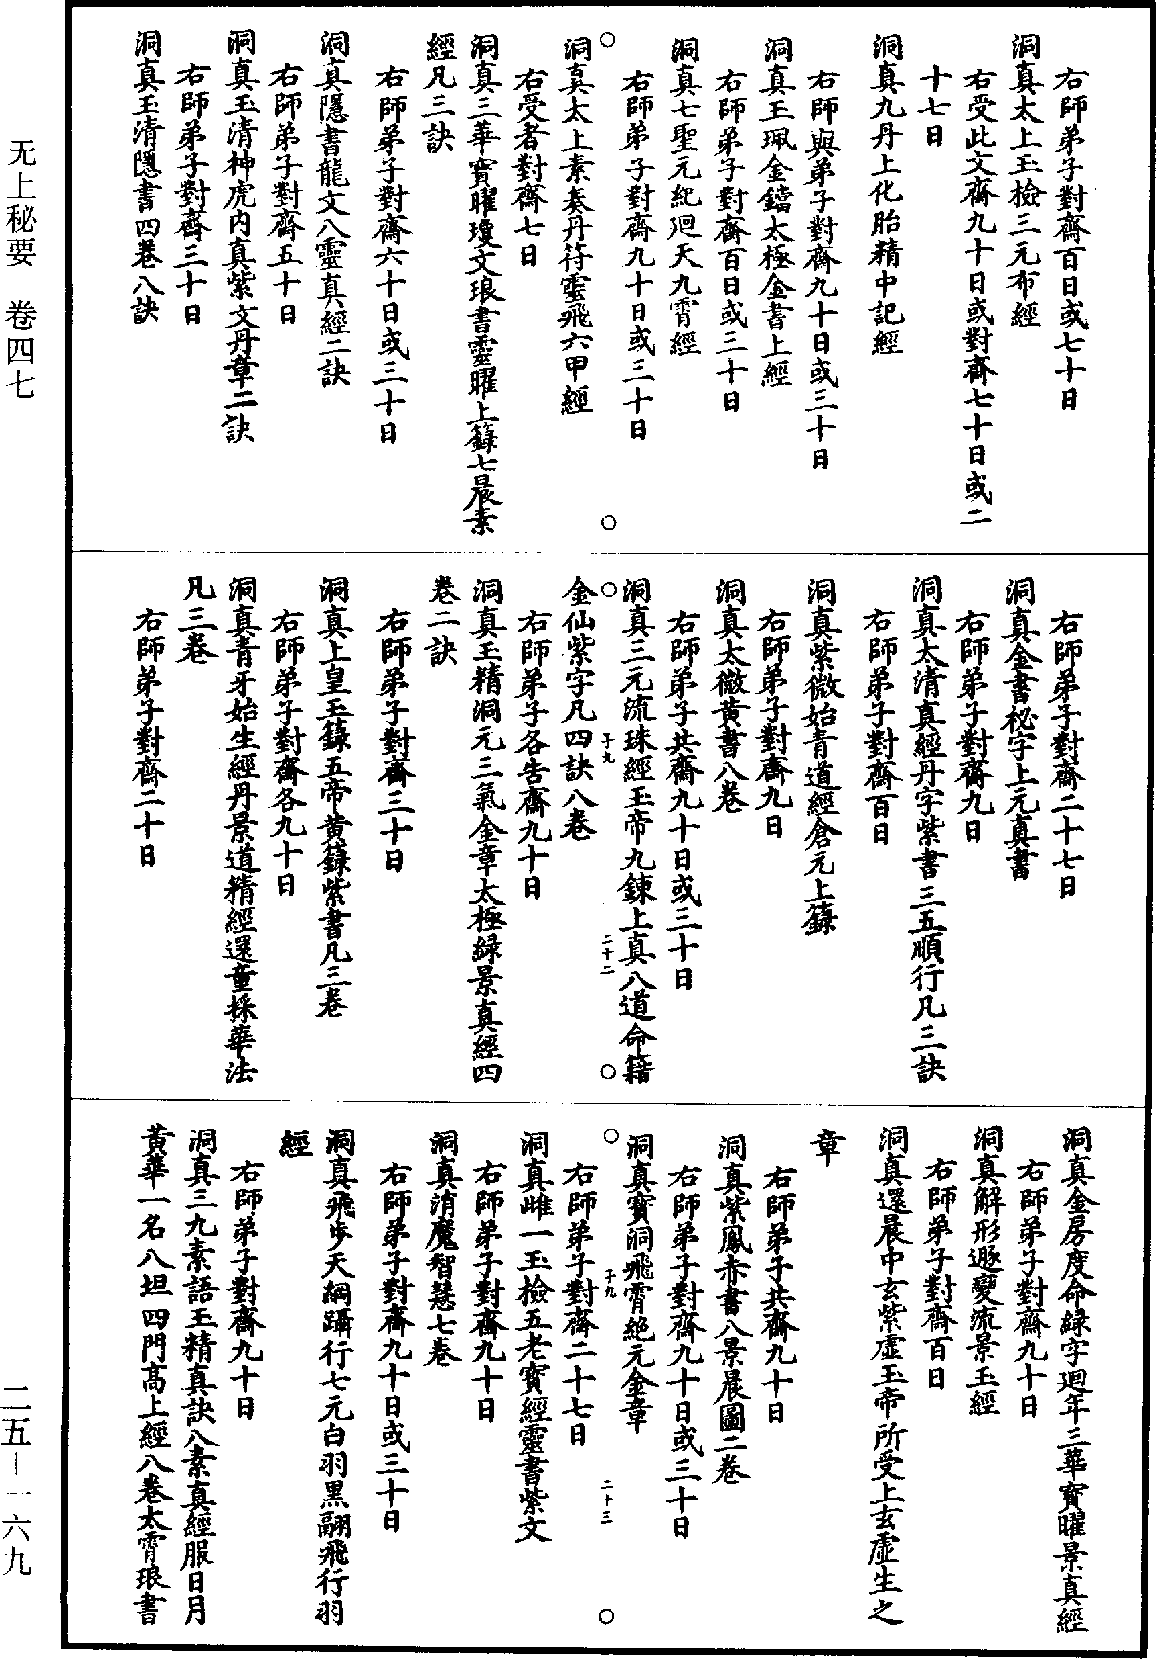 右師弟子對齋百日或七十日
洞真太上玉檢三元布經
右受此文齋九十日或對齋七十日或二
十七日
洞真九丹上化胎精中記經
右師與弟子對齋九十日或三十日
洞真玉珮金鐺太極金書上經
右師弟子對齋百日或三十日
洞真七聖元紀廻天九霄經
右師弟子對齋九十日或三十日
洞真太上素奏丹符靈飛六甲經
右受者對齋七日
洞真三華寶曜瓊文琅書靈曜上籙七晨素
經凡三訣
右師弟子對齋六十日或三十日
洞真隱書龍文八靈真經二訣
右師弟子對齋五十日
洞真玉清神虎内真紫文丹章二訣
右師弟子對齋三十日
洞真玉清隱書四卷八訣
右師弟子對齋二十七日
洞真金書祕字上元真書
右師弟子對齋九日
洞真太清真經丹字紫書三五順行凡三訣
右師弟子對齋百日
洞真紫微始青道經倉元上籙
右師弟子對齋九日
洞真太微黄書八卷
右師弟子共齋九十日或三十日
洞真三元流珠經玉帝九鍊上真八道命籍
子九
二十二
金仙紫字凡四訣八卷
右師弟子各告齋九十日
洞真玉精洞元三氣金章太極緑景真經四
卷二訣
右師弟子對齋三十日
洞真上皇玉籙五帝黄籙紫書凡三卷
右師弟子對齋各九十日
洞真青牙始生經丹景道精經還童採華法
凡三卷
右師弟子對齋二十日
洞真金房度命緑字廻年三華寶曜景真經
右師弟子對齋九十日
洞真解形遯變流景玉經
右師弟子對齋百日
洞真還晨中玄紫虚玉帝所受上玄虚生之
章
右師弟子共齋九十日
洞真紫鳳赤書八景晨圖二卷
右師弟子對齋九十日或三十日
洞真寶洞飛霄絶元金章
子九
二十三
右師弟子對齋二十七日
洞真雌一玉檢五老寶經靈書紫文
右師弟子對齋九十日
洞真消魔智慧七卷
右師弟子對齋九十日或三十日
洞真飛步天綱躡行七元白羽黑翮飛行羽
經
右師弟子對齋九十日
洞真三九素語玉精真訣八素真經服日月
黄華一名八坦四門高上經八卷太霄琅書
无上秘要 卷四七
二五—一六九